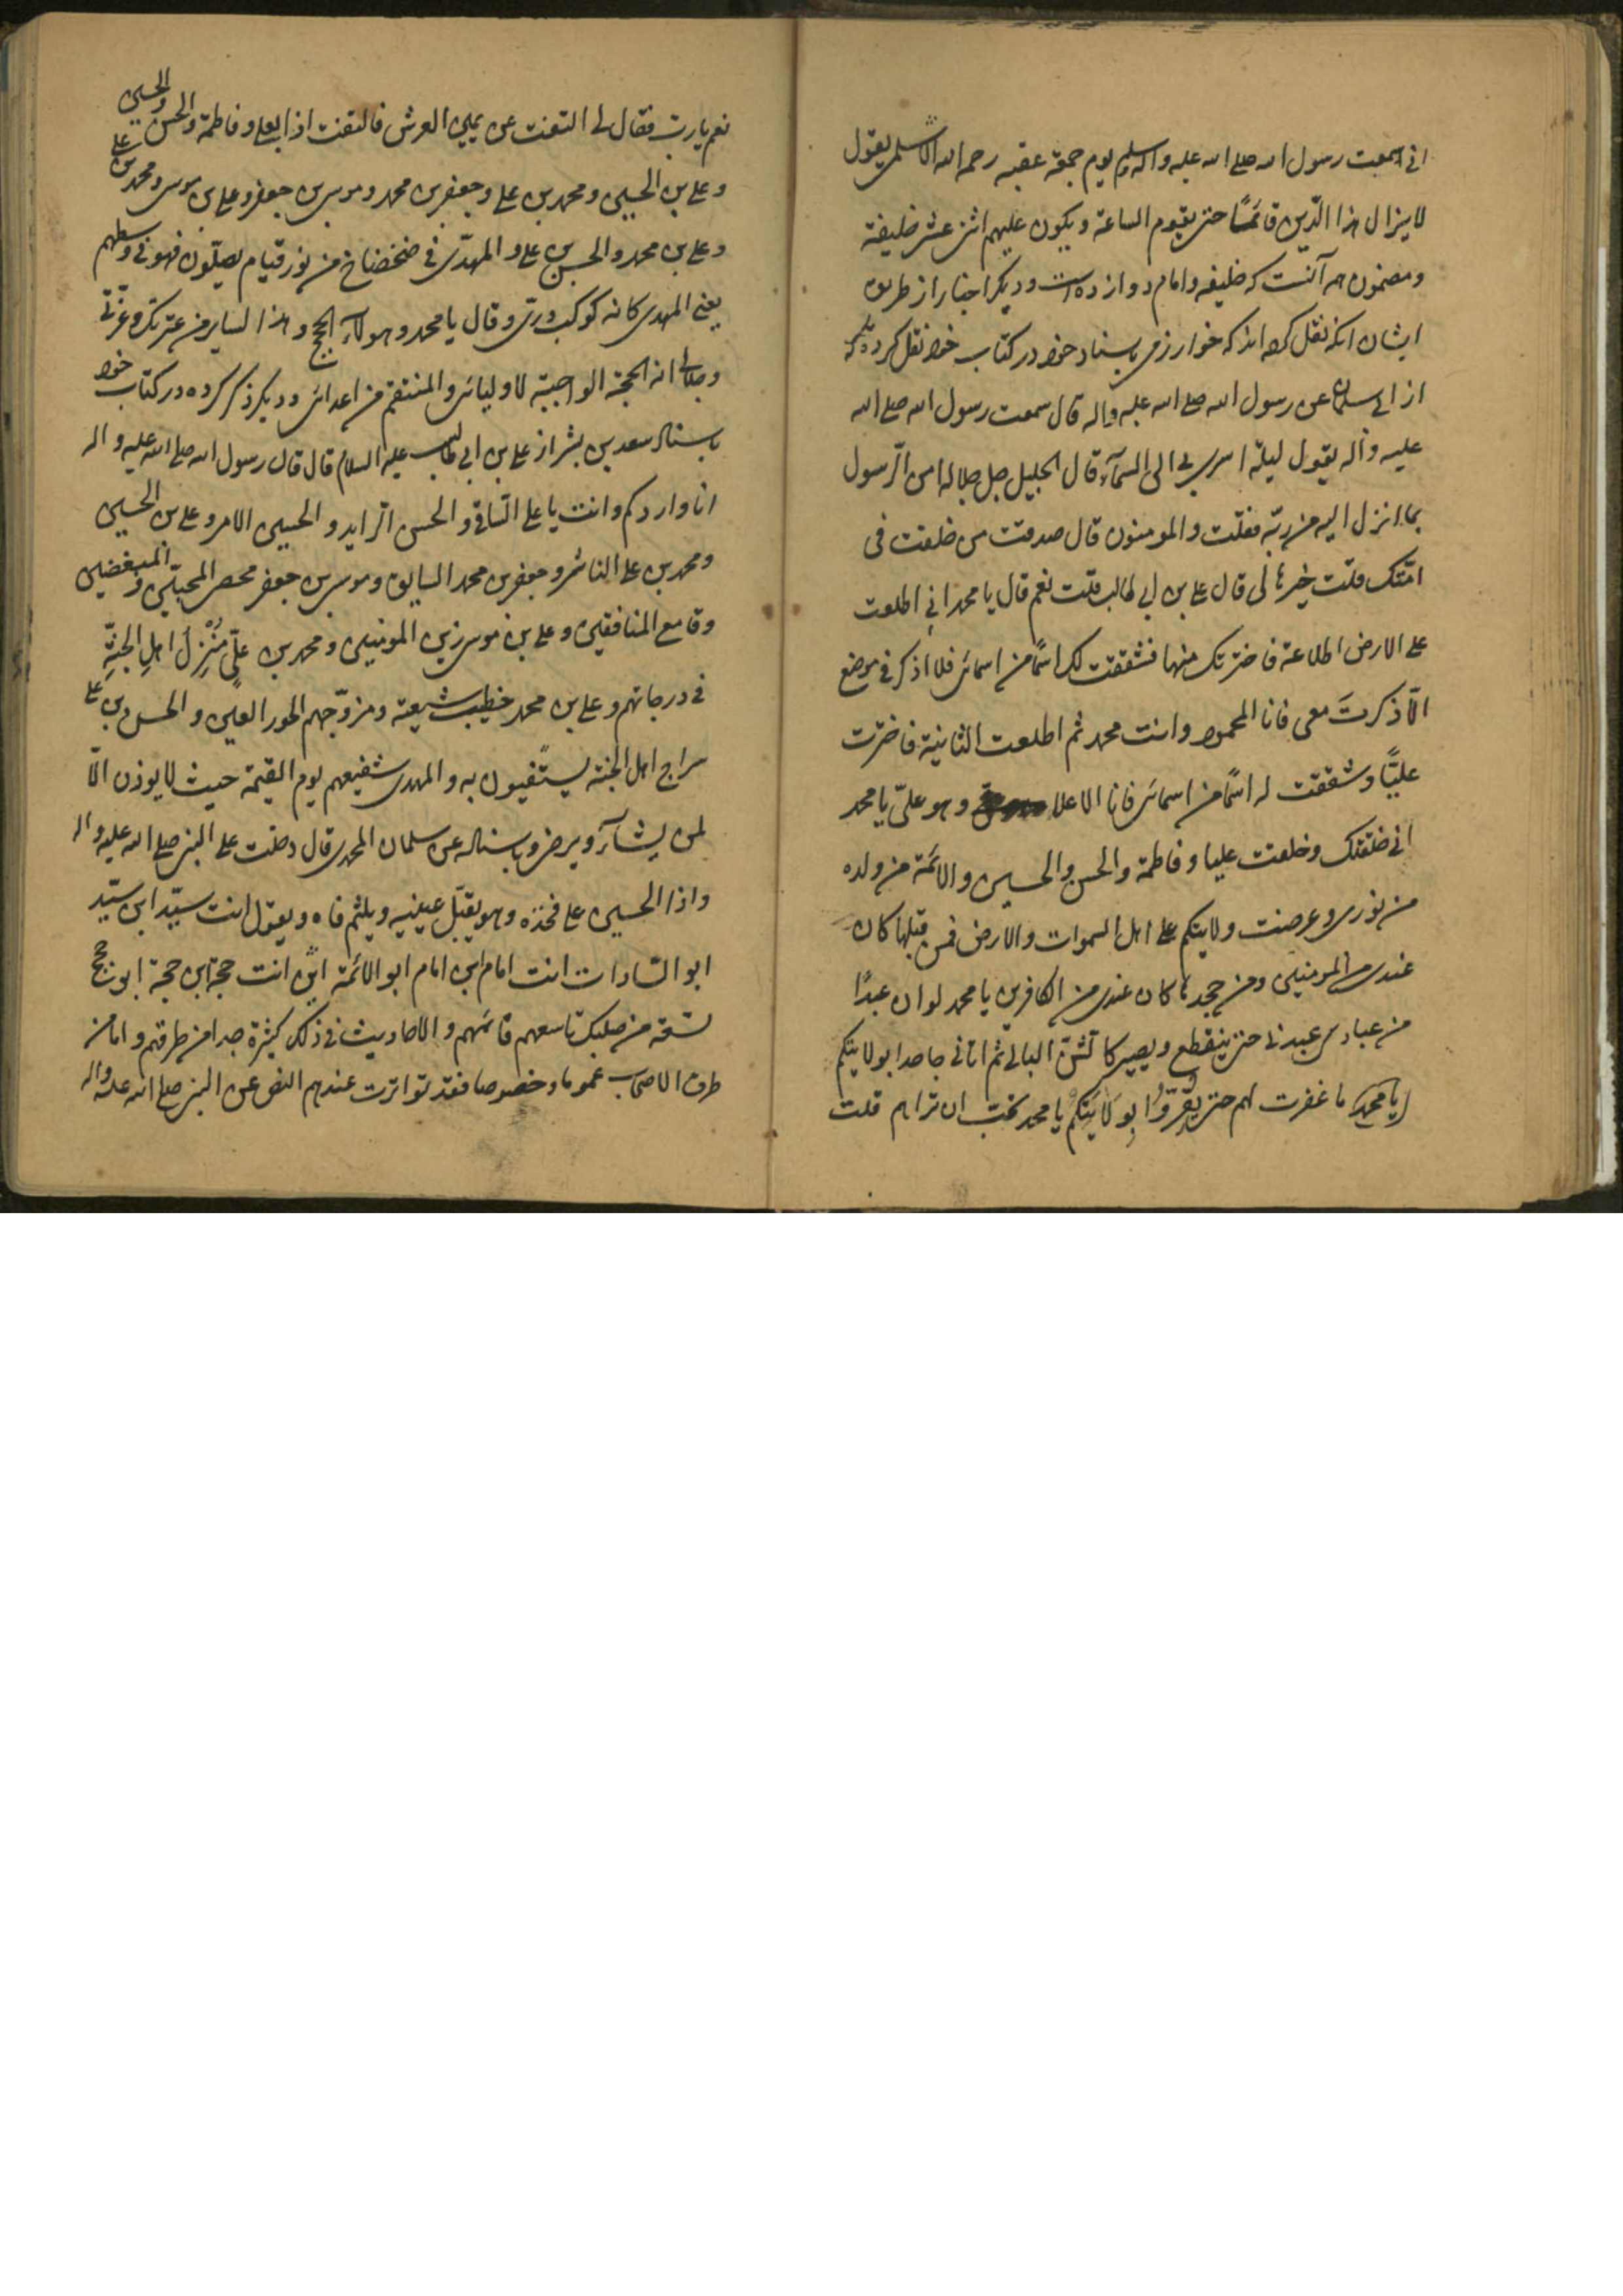 انی سمعت رسول الله صلی الله علیه واله وسلم یوم جمعة عشیة رجم الاسلمی یقول
لایزال هذا الدّین قائمًا حتی یقوم الساعة ویکون علیهم اثنی عشر خلیفة
ومضمون همه آنست که خلیفه وامام دوازده است ودیگر اخبار از طریق
ایشان آنکه نقل کرده اند که خوارزمی باسناد خود در کتاب خود نقل کرده که
از ابی سلمان عن رسول الله صلی الله علیه واله قال سمعت رسول الله صلی الله
علیه واله یقول لیلة اسری بی الی السمآء قال الجلیل جل جلاله امن الرّسول
بما انزل الیه من ربّه فقلت والمومنون قال صدقت من خلفت فی
امّتک قلت خیرها قال علی بن ابی طالب قلت نعم قال یا محمد انی اطلعت
علی الارض اطلاعة فاخترتک منها فشققت لک اسمًا من اسمائی فلا اذکر فی موضع
الّا ذکرتَ معی فانا المحمود وانت محمد ثم اطلعت الثانیة فاخترت
علیًّا وشققت له اسمًا من اسمائی فانا الاعلا وهو علیّ یا محمد
انی خلقتک وخلقت علیا وفاطمة والحسن والحسین والائمة من ولده
من نوری وعرضت ولایتکم علی اهل السموات والارض فمن قبلها کان
عندی من المومنین ومن جحدها کان عندی من الکافرین یا محمد لو ان عبدًا
من عبادی عبدنی حتی ینقطع ویصیر کالشنّ البالی ثم اتانی جاحدا بولایتکم
یا محمد ما غفرت لهم حتی یُقِرّوُا بِوَلَایَتِکُم یا محمد تحب ان تراهم قلت
نعم یارب فقال لی التفت عن یمین العرش فالتفت اذا بعلی وفاطمة والحسن والحسین
وعلی بن الحسین ومحمد بن علی وجعفر بن محمد وموسی بن جعفر وعلی بن موسی ومحمد بن علی
وعلی بن محمد والحسن بن علی والمهدّی فی ضخضاخ من نور قیام یصلّون فهو فی وسطهم
یعنی المهدی کانه کوکب درّی وقال یا محمد وهولآء الحجج وهذا السایر من عترتک وعزّتی
وجلالی انه الحجة الواجبة لاولیائی والمنتقم من اعدائی ودیگر ذکر کرده در کتاب خود
باسناد سعد بن بشر از علی بن ابی طالب علیه السلام قال قال رسول الله صلی الله علیه واله
انا واردکم وانت یا علی السّاقی والحسن الرّاید والحسین الامر وعلی بن الحسین
ومحمد بن علی الناشر وجعفر بن محمد السایق وموسی بن جعفر محصی المحبّین والمبغضین
وقامع المنافقین وعلی بن موسی زین المومنین ومحمد بن علیّ مُنْزِلُ اهلِ الجنّةِ
فی درجاتهم وعلی بن محمد خطیب شیعته ومزوّجهم الحور العین والحسن بن علی
سراج اهل الجنة یستضیون به والمهدی شفیعهم یوم القیمة حیث لا یوذن الّا
لمن یشآء ویرضی وباسناد عن سلمان المحمدی قال دخلت علی النبی صلی الله علیه واله
واذا الحسین علی فخذه وهو یقبّل عینیه ویلثم فاه ویقول انت سیّد ابن سیّد
ابو السّادات انت امام ابن امام ابو الائمة انت حجة ابن حجة ابو حجج
تسعة من صلبک تاسعهم قائمهم والاحادیث فی ذلک کثیرة جدا من طرقهم واما من
طرق الاصحاب عموما وخصوصا فقد تواترت عندهم النص عن النبی صلی الله علیه واله